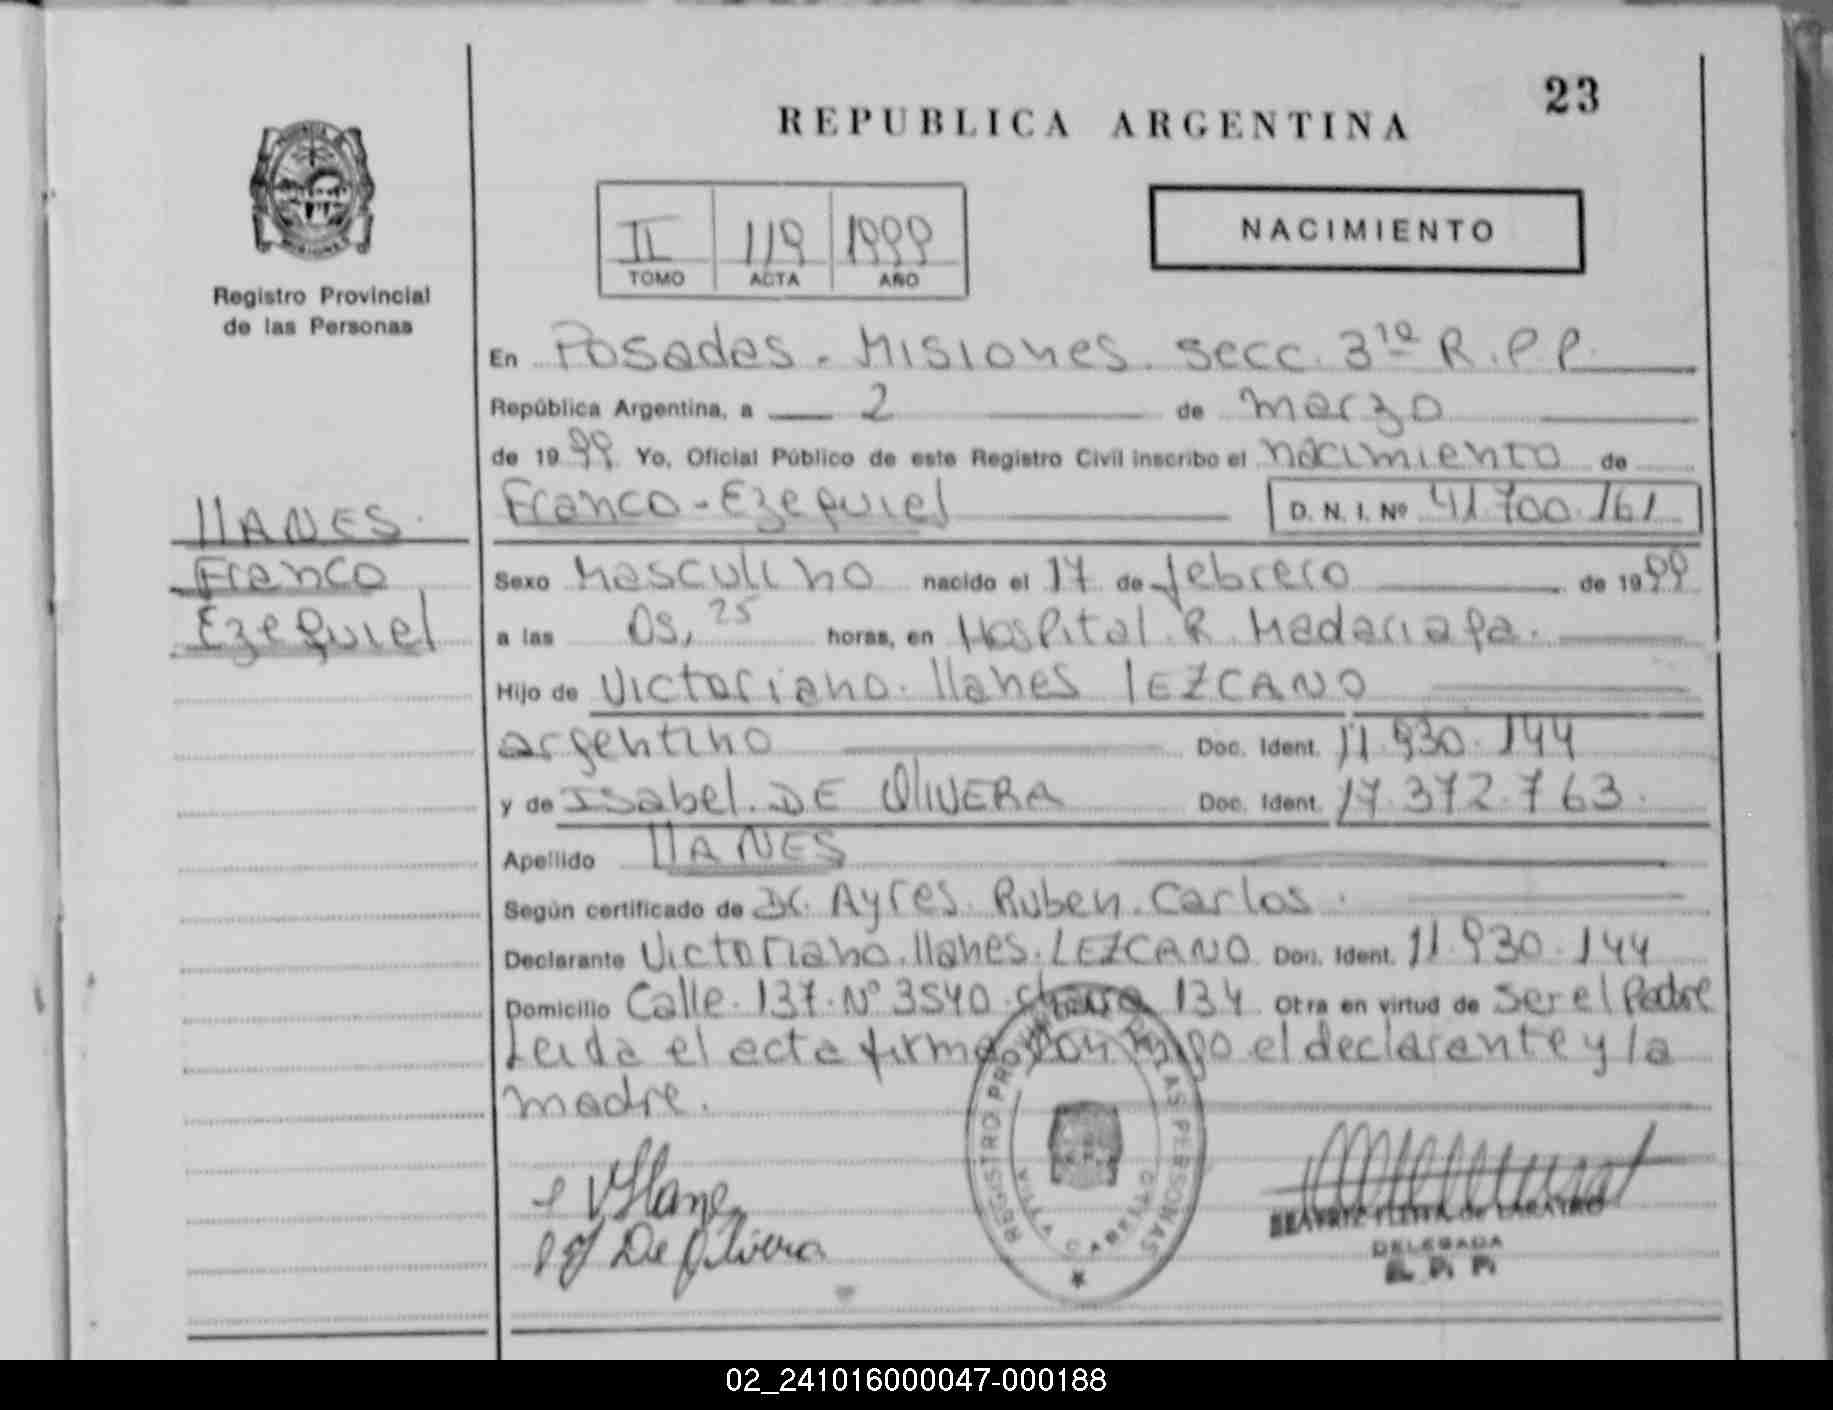 23
REPUBLICA ARGENTINA
II 119 1999
TOMO ACTA AÑO
NACIMIENTO
Registro Provincial
de las Personas
En Posadas - Misiones. secc. 3ra R.P.P.
República Argentina, a 2 de marzo
de 1999 Yo, Oficial Público de este Registro Civil inscribo el nacimiento de
Franco - Ezequiel D. N. I. Nº 41.700.161
llANES.
Franco
Ezequiel
Sexo Masculino nacido el 17 de febrero de 1999
a las 05,25 horas, en Hospital. R. Madariaga.
Hijo de Victoriano. llanes lEZCANO
argentino Doc. Ident. 11.930.144
y de Isabel. DE OlIVERA Doc. Ident. 17.372.763.
Apellido llANES
Según certificado de Dr. Ayres. Ruben. Carlos.
Declarante Victoriano. llanes. LEZCANO Doc. Ident. 11.930.144
Domicilio Calle. 137. Nº 3540. chacra 134 Otra en virtud de ser el Padre
Leida el acta firma con migo el declarante y la
madre.
V Llanes
De Olivera
REGISTRO PROVINCIAL DE LAS PERSONAS
DELEGADA
R. P. P.
02_241016000047-000188